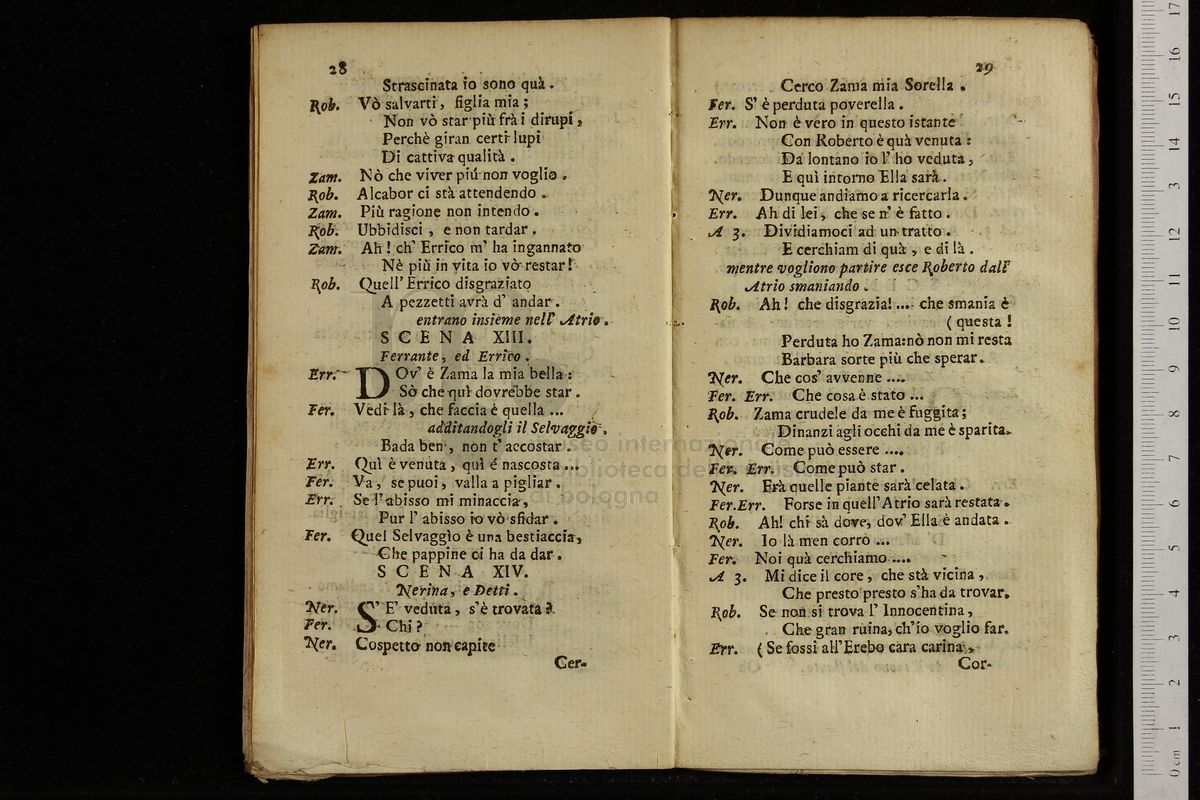 28
Strascinata io sono quà.
Rob. Vò salvarti, figlia mia;
Non vò star più frà i dirupi,
Perchè giran certi lupi
Di cattiva qualità.
Zam. Nò che viver piú non voglio.
Rob. Alcabor ci stà attendendo.
Zam. Più ragione non intendo.
Rob. Ubbidisci, e non tardar.
Zam. Ah! ch' Errico m' ha ingannato
Nè più in vita io vò restar!
Rob. Quell' Errico disgraziato
A pezzetti avrà d' andar.
entrano insieme nell' Atrio.
SCENA XIII.
Ferrante, ed Errico.
Err. DOv' è Zama la mia bella:
Sò che quì dovrebbe star.
Fer. Vedi là, che faccia è quella ...
additandogli il Selvaggio.
Bada ben, non t' accostar.
Err. Quì è venuta, quì é nascosta ...
Fer. Va, se puoi, valla a pigliar.
Err. Se l' abisso mi minaccia,
Pur l' abisso io vò sfidar.
Fer. Quel Selvaggio è una bestiaccia,
Che pappine ci ha da dar.
SCENA XIV.
Nerina, e Detti.
Ner. S' E' veduta, s'è trovata?
Fer. Chi?
Ner. Cospetto non capite
Cer-
29
Cerco Zama mia Sorella.
Fer. S' è perduta poverella.
Err. Non è vero in questo istante
Con Roberto è quà venuta:
Da lontano io l' ho veduta,
E quì intorno Ella sarà.
Ner. Dunque andiamo a ricercarla.
Err. Ah di lei, che se n' è fatto.
A 3. Dividiamoci ad un tratto.
E cerchiam di quà, e di là.
mentre vogliono partire esce Roberto dall'
Atrio smaniando.
Rob. Ah! che disgrazia! .... che smania è
( questa!
Perduta ho Zama: nò non mi resta
Barbara sorte più che sperar.
Ner. Che cos' avvenne ....
Fer. Err. Che cosa è stato ...
Rob. Zama crudele da me è fuggita;
Dinanzi agli occhi da me è sparita.
Ner. Come può essere ....
Fer. Err. Come può star.
Ner. Frà quelle piante sarà celata.
Fer. Err. Forse in quell' Atrio sarà restata.
Rob. Ah! chi sà dove, dov' Ella è andata.
Ner. Io là men corro ...
Fer. Noi quà cerchiamo ....
A 3. Mi dice il core, che stà vicina,
Che presto presto s'ha da trovar.
Rob. Se non si trova l' Innocentina,
Che gran ruina, ch'io voglio far.
Err. ( Se fossi all' Erebo cara carina,
Cor-
museo internazionale
biblioteca della musica
di bologna